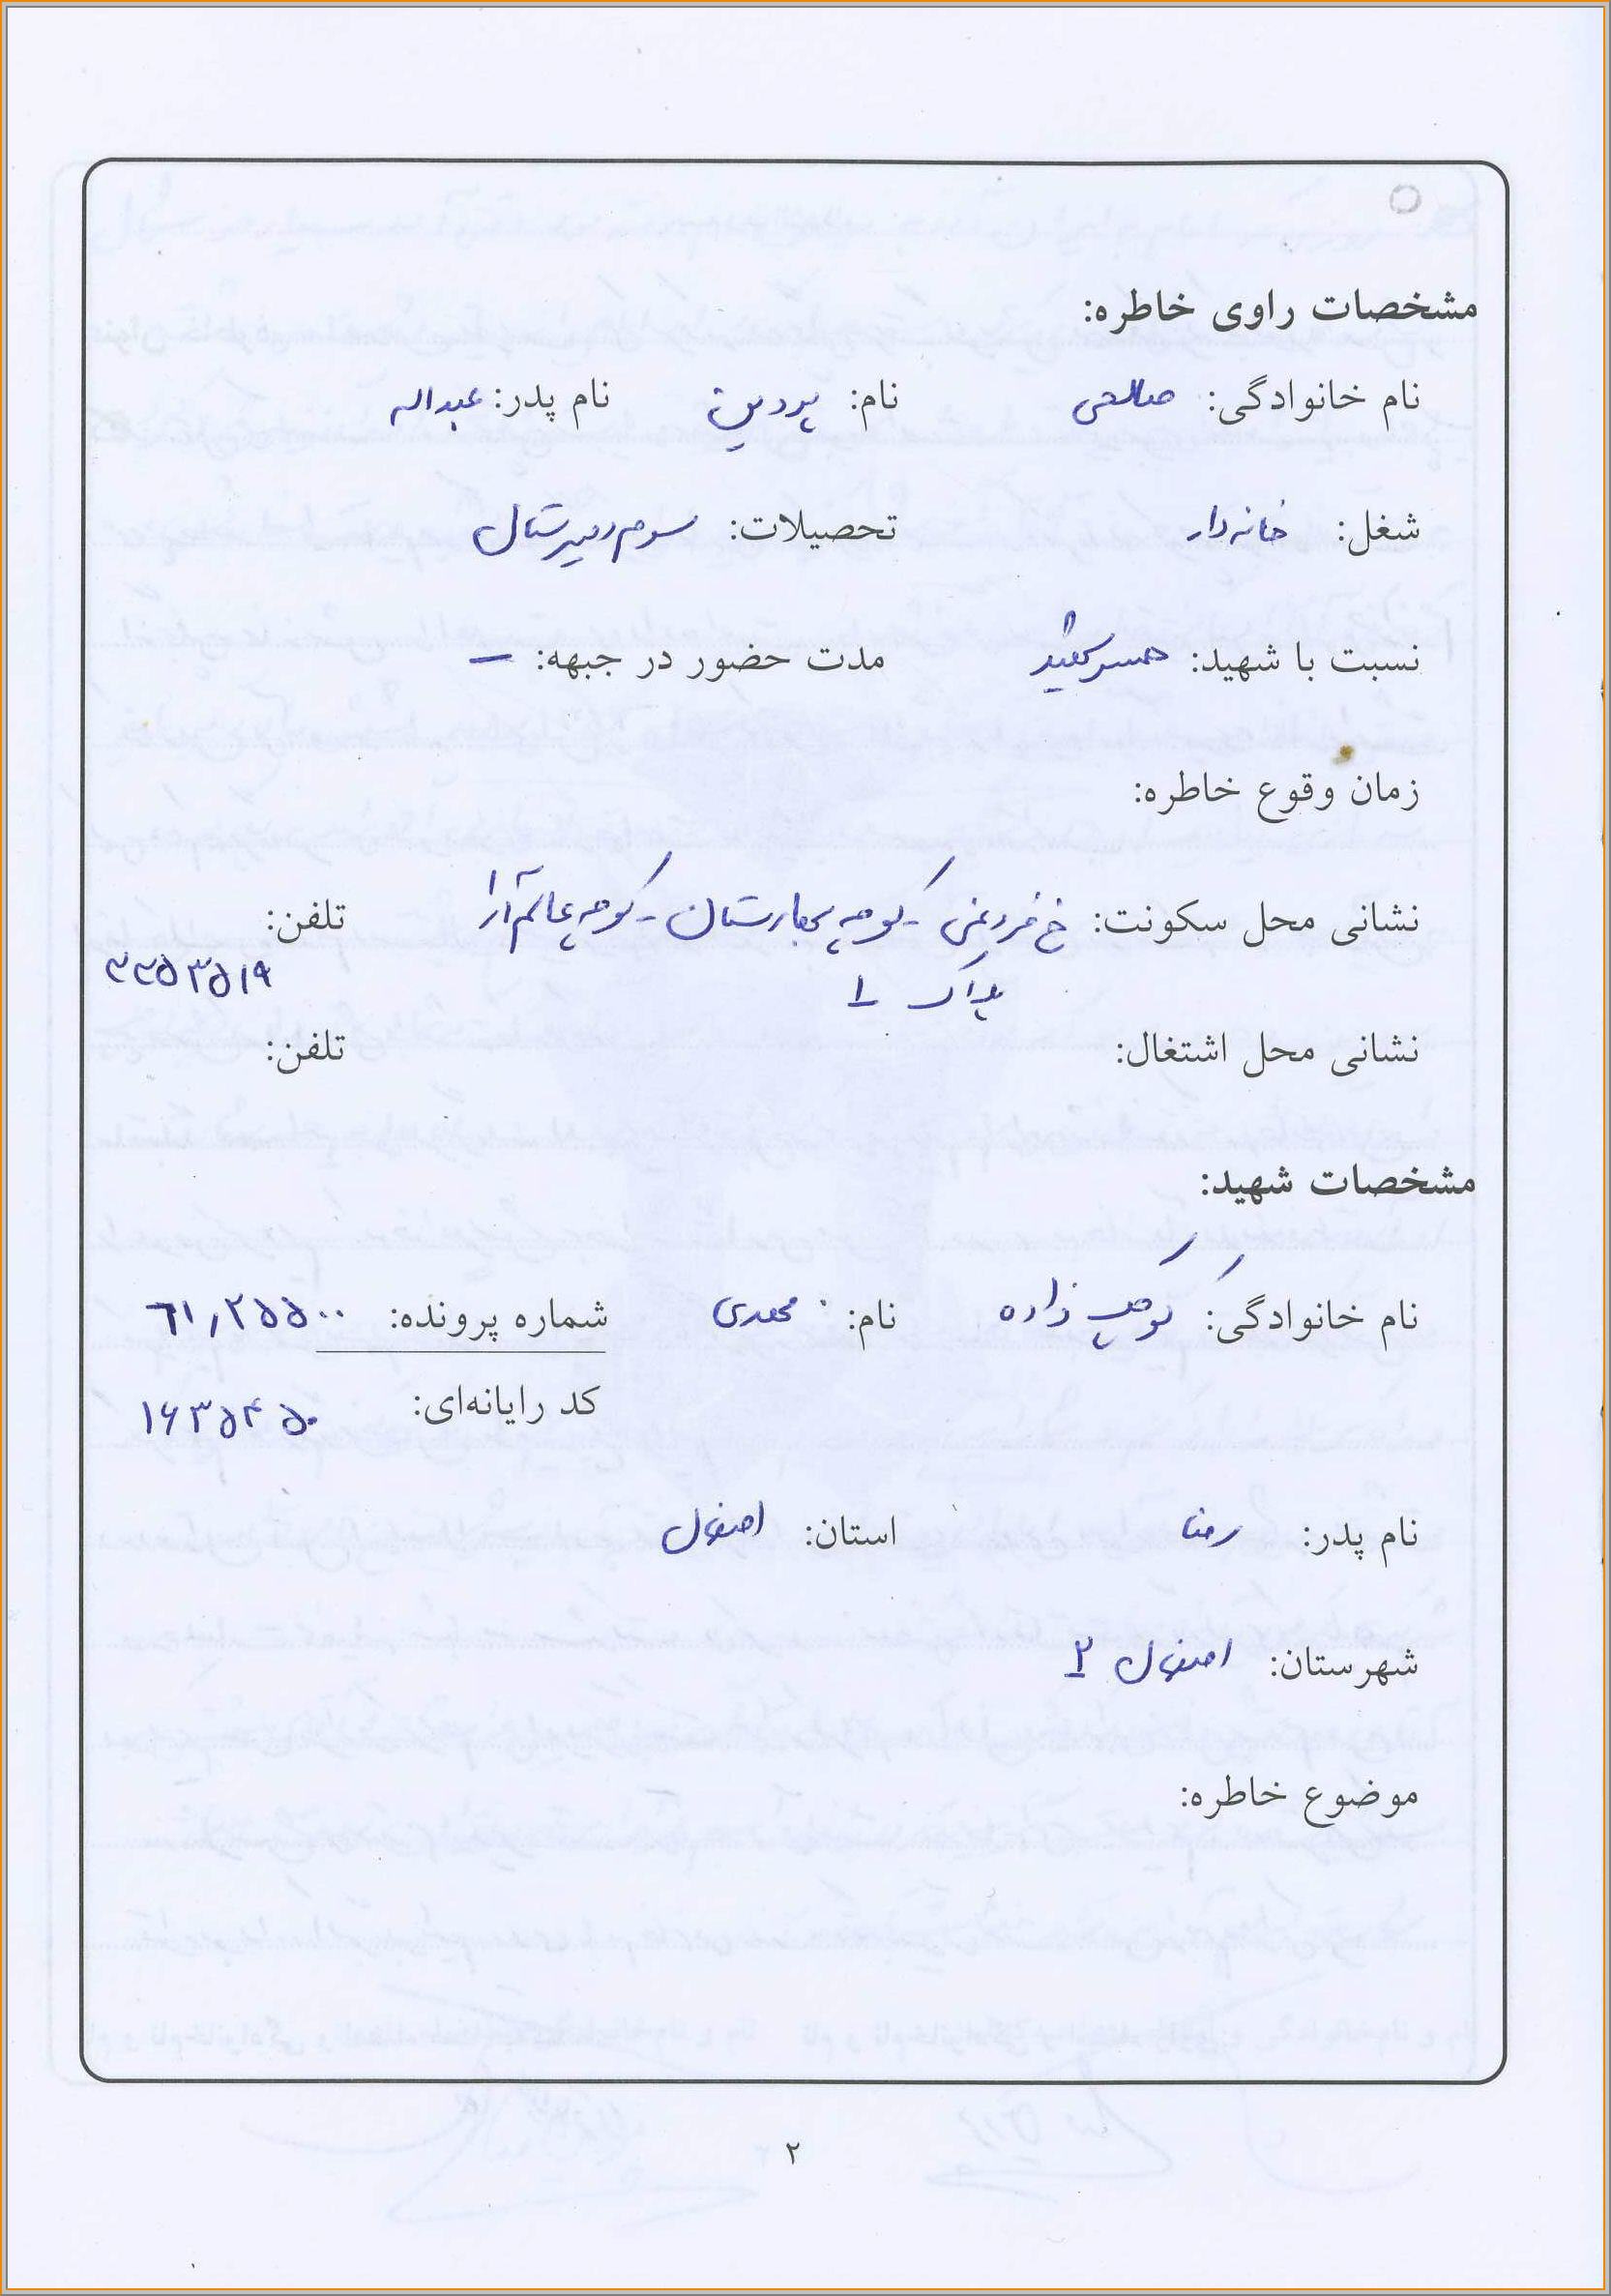 مشخصات راوی خاطره:
نام خانوادگی: صالحی نام: پروین نام پدر: عبداله
شغل: خانه‌دار تحصیلات: سوم دبیرستان
نسبت با شهید: همسر شهید مدت حضور در جبهه: –
زمان وقوع خاطره:
نشانی محل سکونت: خ فروغی - کوچه بهارستان - کوچه عالم آرا تلفن:
پلاک ۱ ۳۳۵۳۵۱۹
نشانی محل اشتغال: تلفن:
مشخصات شهید:
نام خانوادگی: کوچک زاده نام: مهدی شماره پرونده: ۶۱٫۲۵۵۰۰
کد رایانه‌ای: ۱۶۳۵۴۵۰
نام پدر: رضا استان: اصفهان
شهرستان: اصفهان ۲
موضوع خاطره:
۲